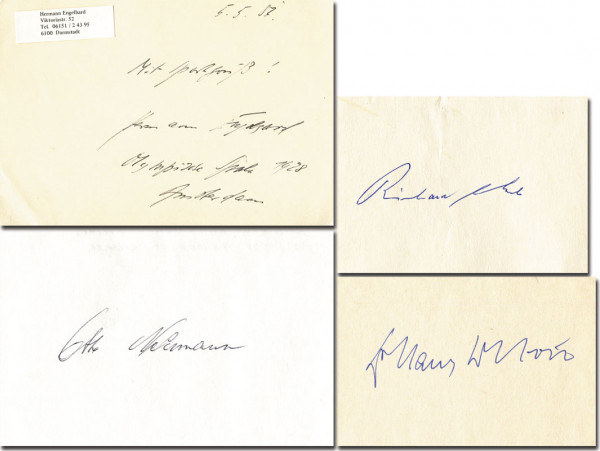 Hermann Engelhard
Viktoriastr. 52
Tel. 06151 / 2 43 95
6100 Darmstadt
6.5.87.
Mit Sportgruß!
Hermann Engelhard
Olympische Spiele 1928
Amsterdam
Richard
Otto Neumann
Dr Hans